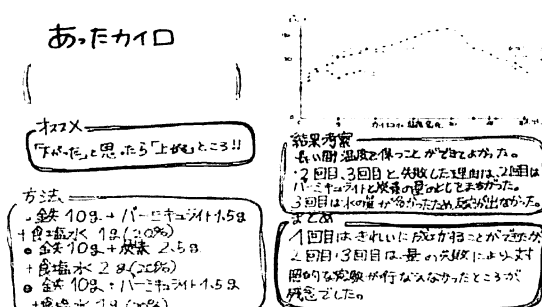 あったカイロ
オススメ
「下がった」と思ったら「上がる」ところ!!
方法
鉄 10g + バーミキュライト1.5g
+食塩水 1g (20%)
鉄 10g + 炭素 2.5g
+食塩水 2g (20%)
鉄 10g + バーミキュライト1.5g
+食塩水
カイロの温度変化
結果考察
長い間温度を保つことができてよかった。
・2回目、3回目と失敗した理由は、2回目は
バーミキュライトと炭素の量の
3回目は水の量が
まとめ
1回目はきれいに成功することができたが
2回目・3回目は量の失敗により
的な実験が行なえなかったところが
残念でした。